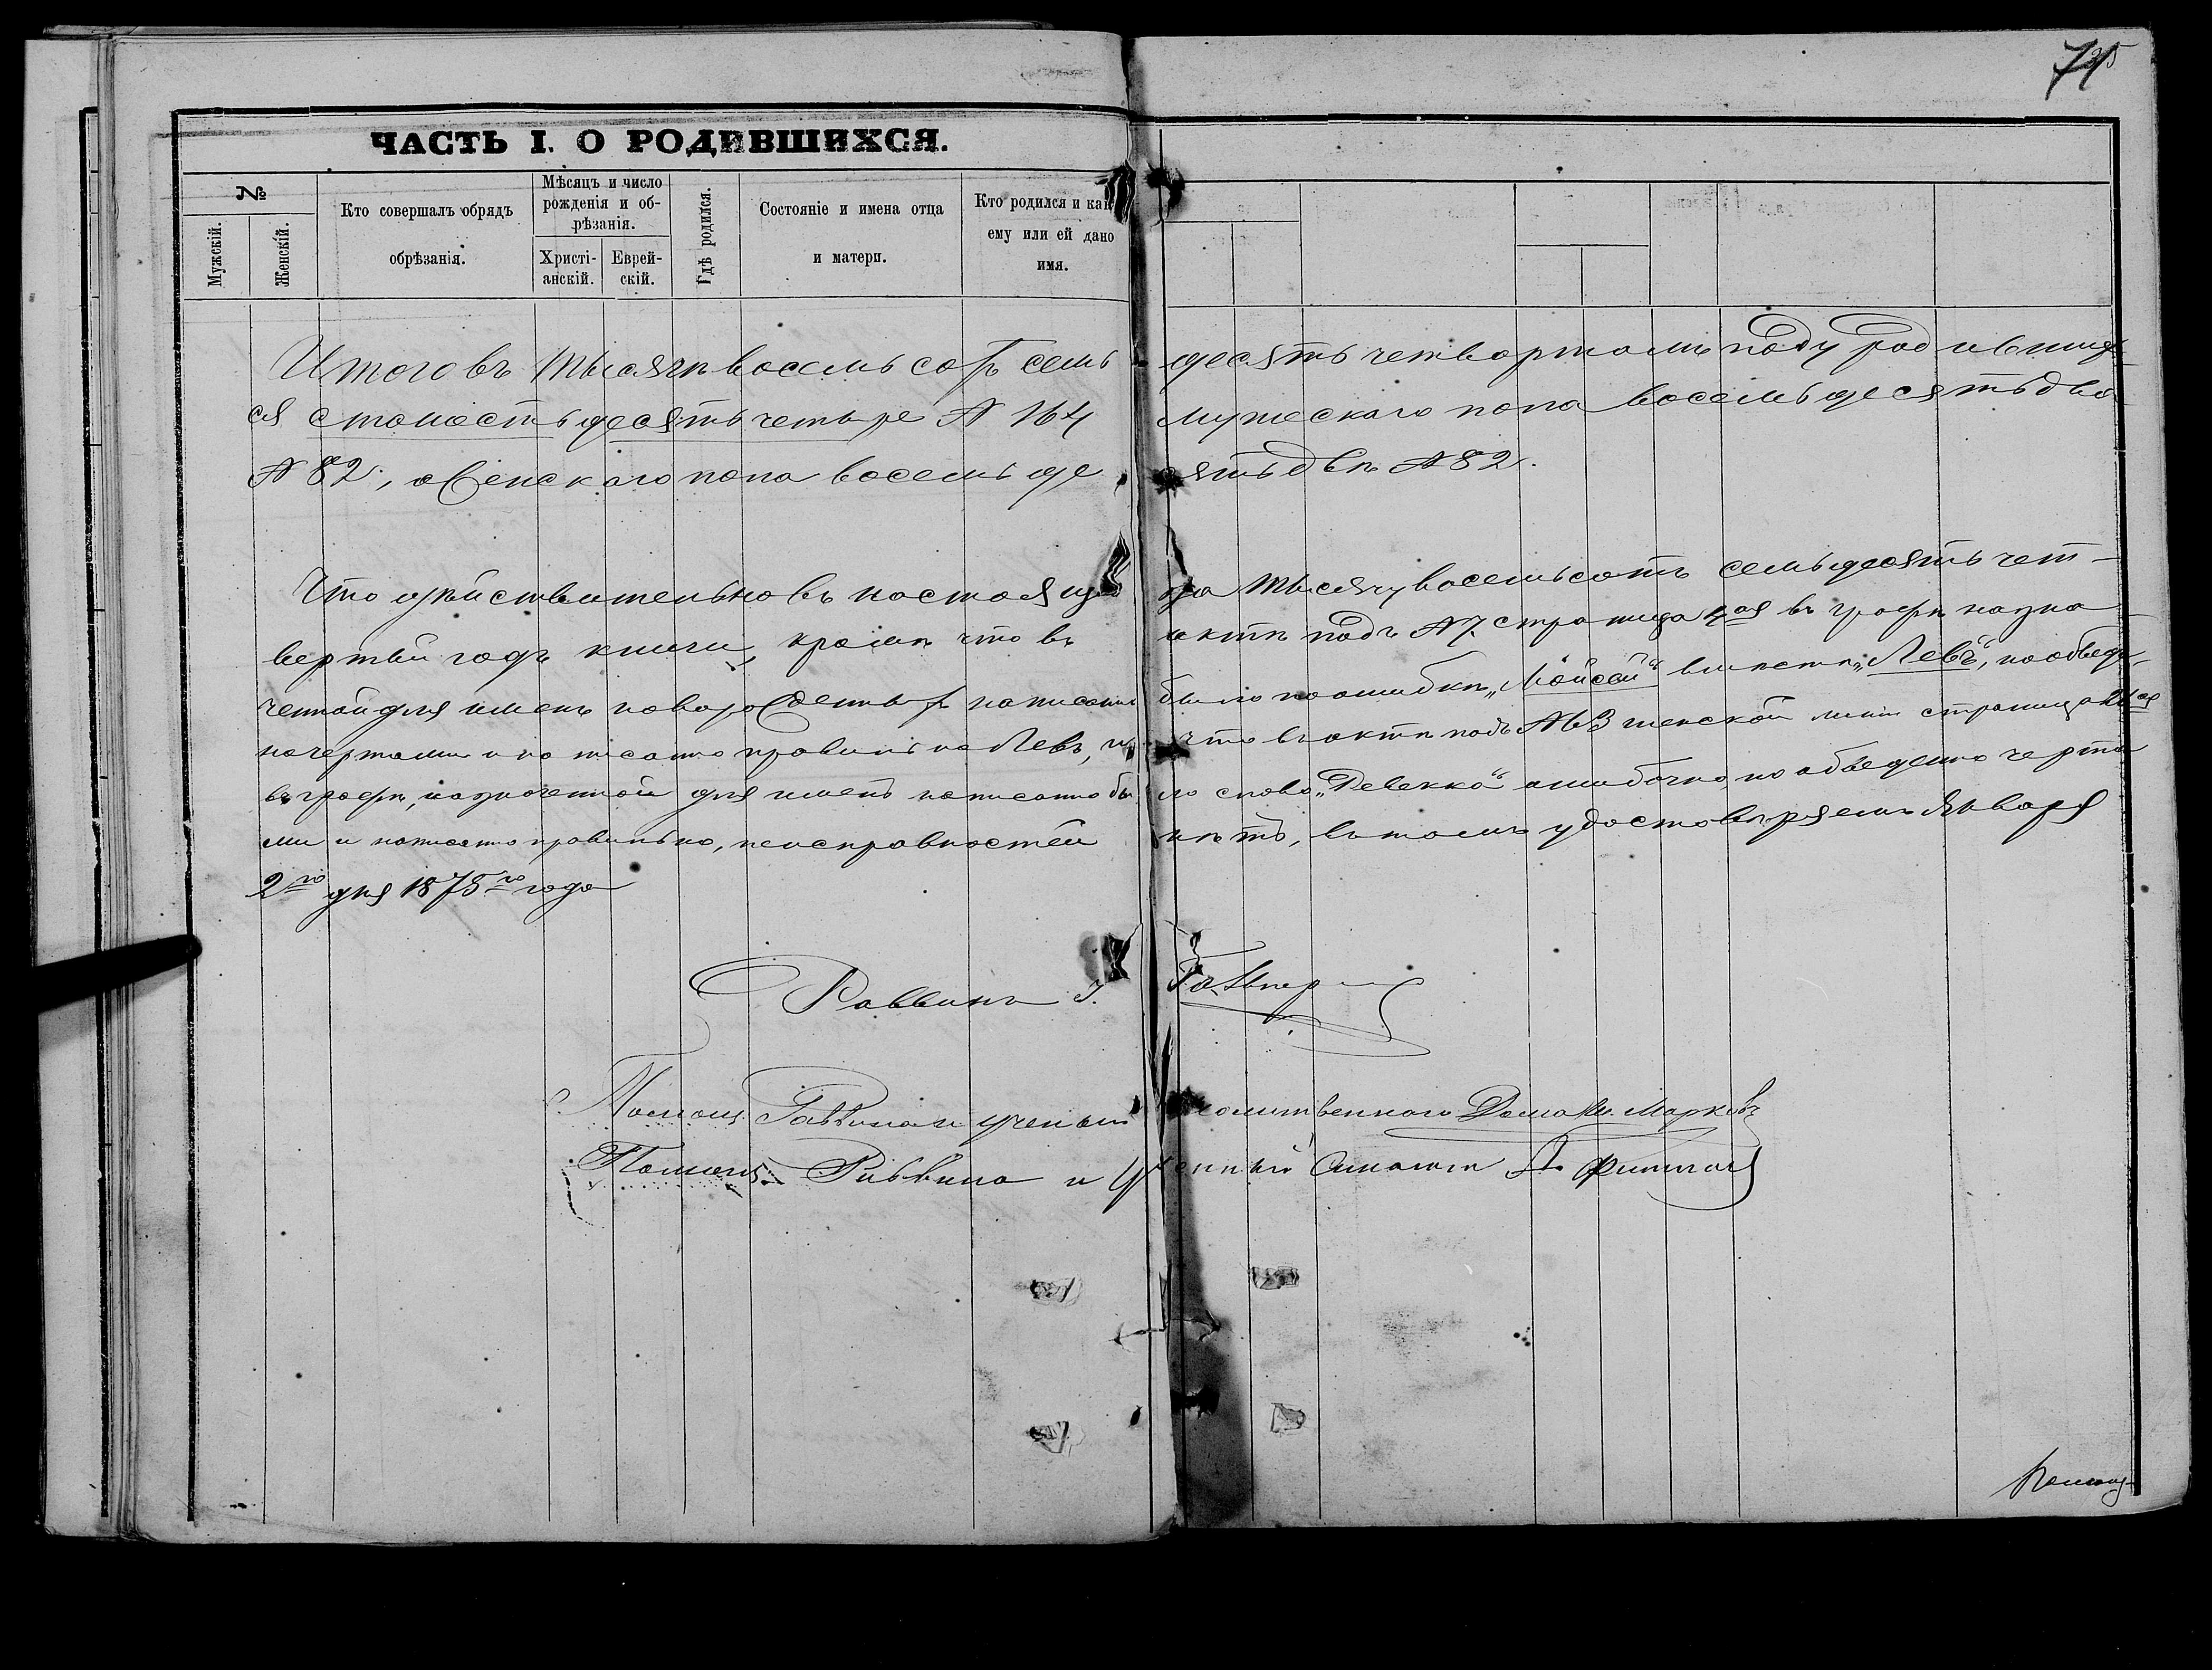 75
ЧАСТЬ I. О РОДИВШИХСЯ.
№
Мужскій.
Женскій.
Кто совершалъ обрядъ
обрѣзанія.
Мѣсяцъ и число
рожденія и об-
рѣзанія.
Христі-
анскій.
Еврей-
скій.
Гдѣ родился.
Состояніе и имена отца
и матери.
Кто родился и как
ему или ей дано
имя.
Итого въ тысяча восемь сотъ семь десятъ четвертомъ году родивших
ся сто шесть десятъ четыре № 164 мужескаго пола восемь десятъ два
№ 82, женскаго пола восемь десятъ двѣ № 82.
Что дѣйствительно въ настоящей на тысячу восемьсотъ семьдесятъ чет-
вертый годъ книги, кромѣ что въ актѣ подъ № 7 страница 4ая въ графѣ назна
ченной для именъ новорожденныхъ написано было по ошибкѣ „Мойсей“ вмѣсто „Левъ“, но обведе-
но чертами и написано правильно Левъ, и что въ актѣ подъ № 63 женской страница 21ая
въ графѣ, назначенной для именъ написано бы ло слово „Ревекка“ ошибочно, но обведено черта
ми и написано правильно, неисправностей нѣтъ, въ томъ удостовѣряемъ Января
2го дня 1875го года
Раввинъ
Помощ. Раввина и ученый Молитвеннаго Дома Марковъ
Помощ. Раввина и Ученый
Помощ-